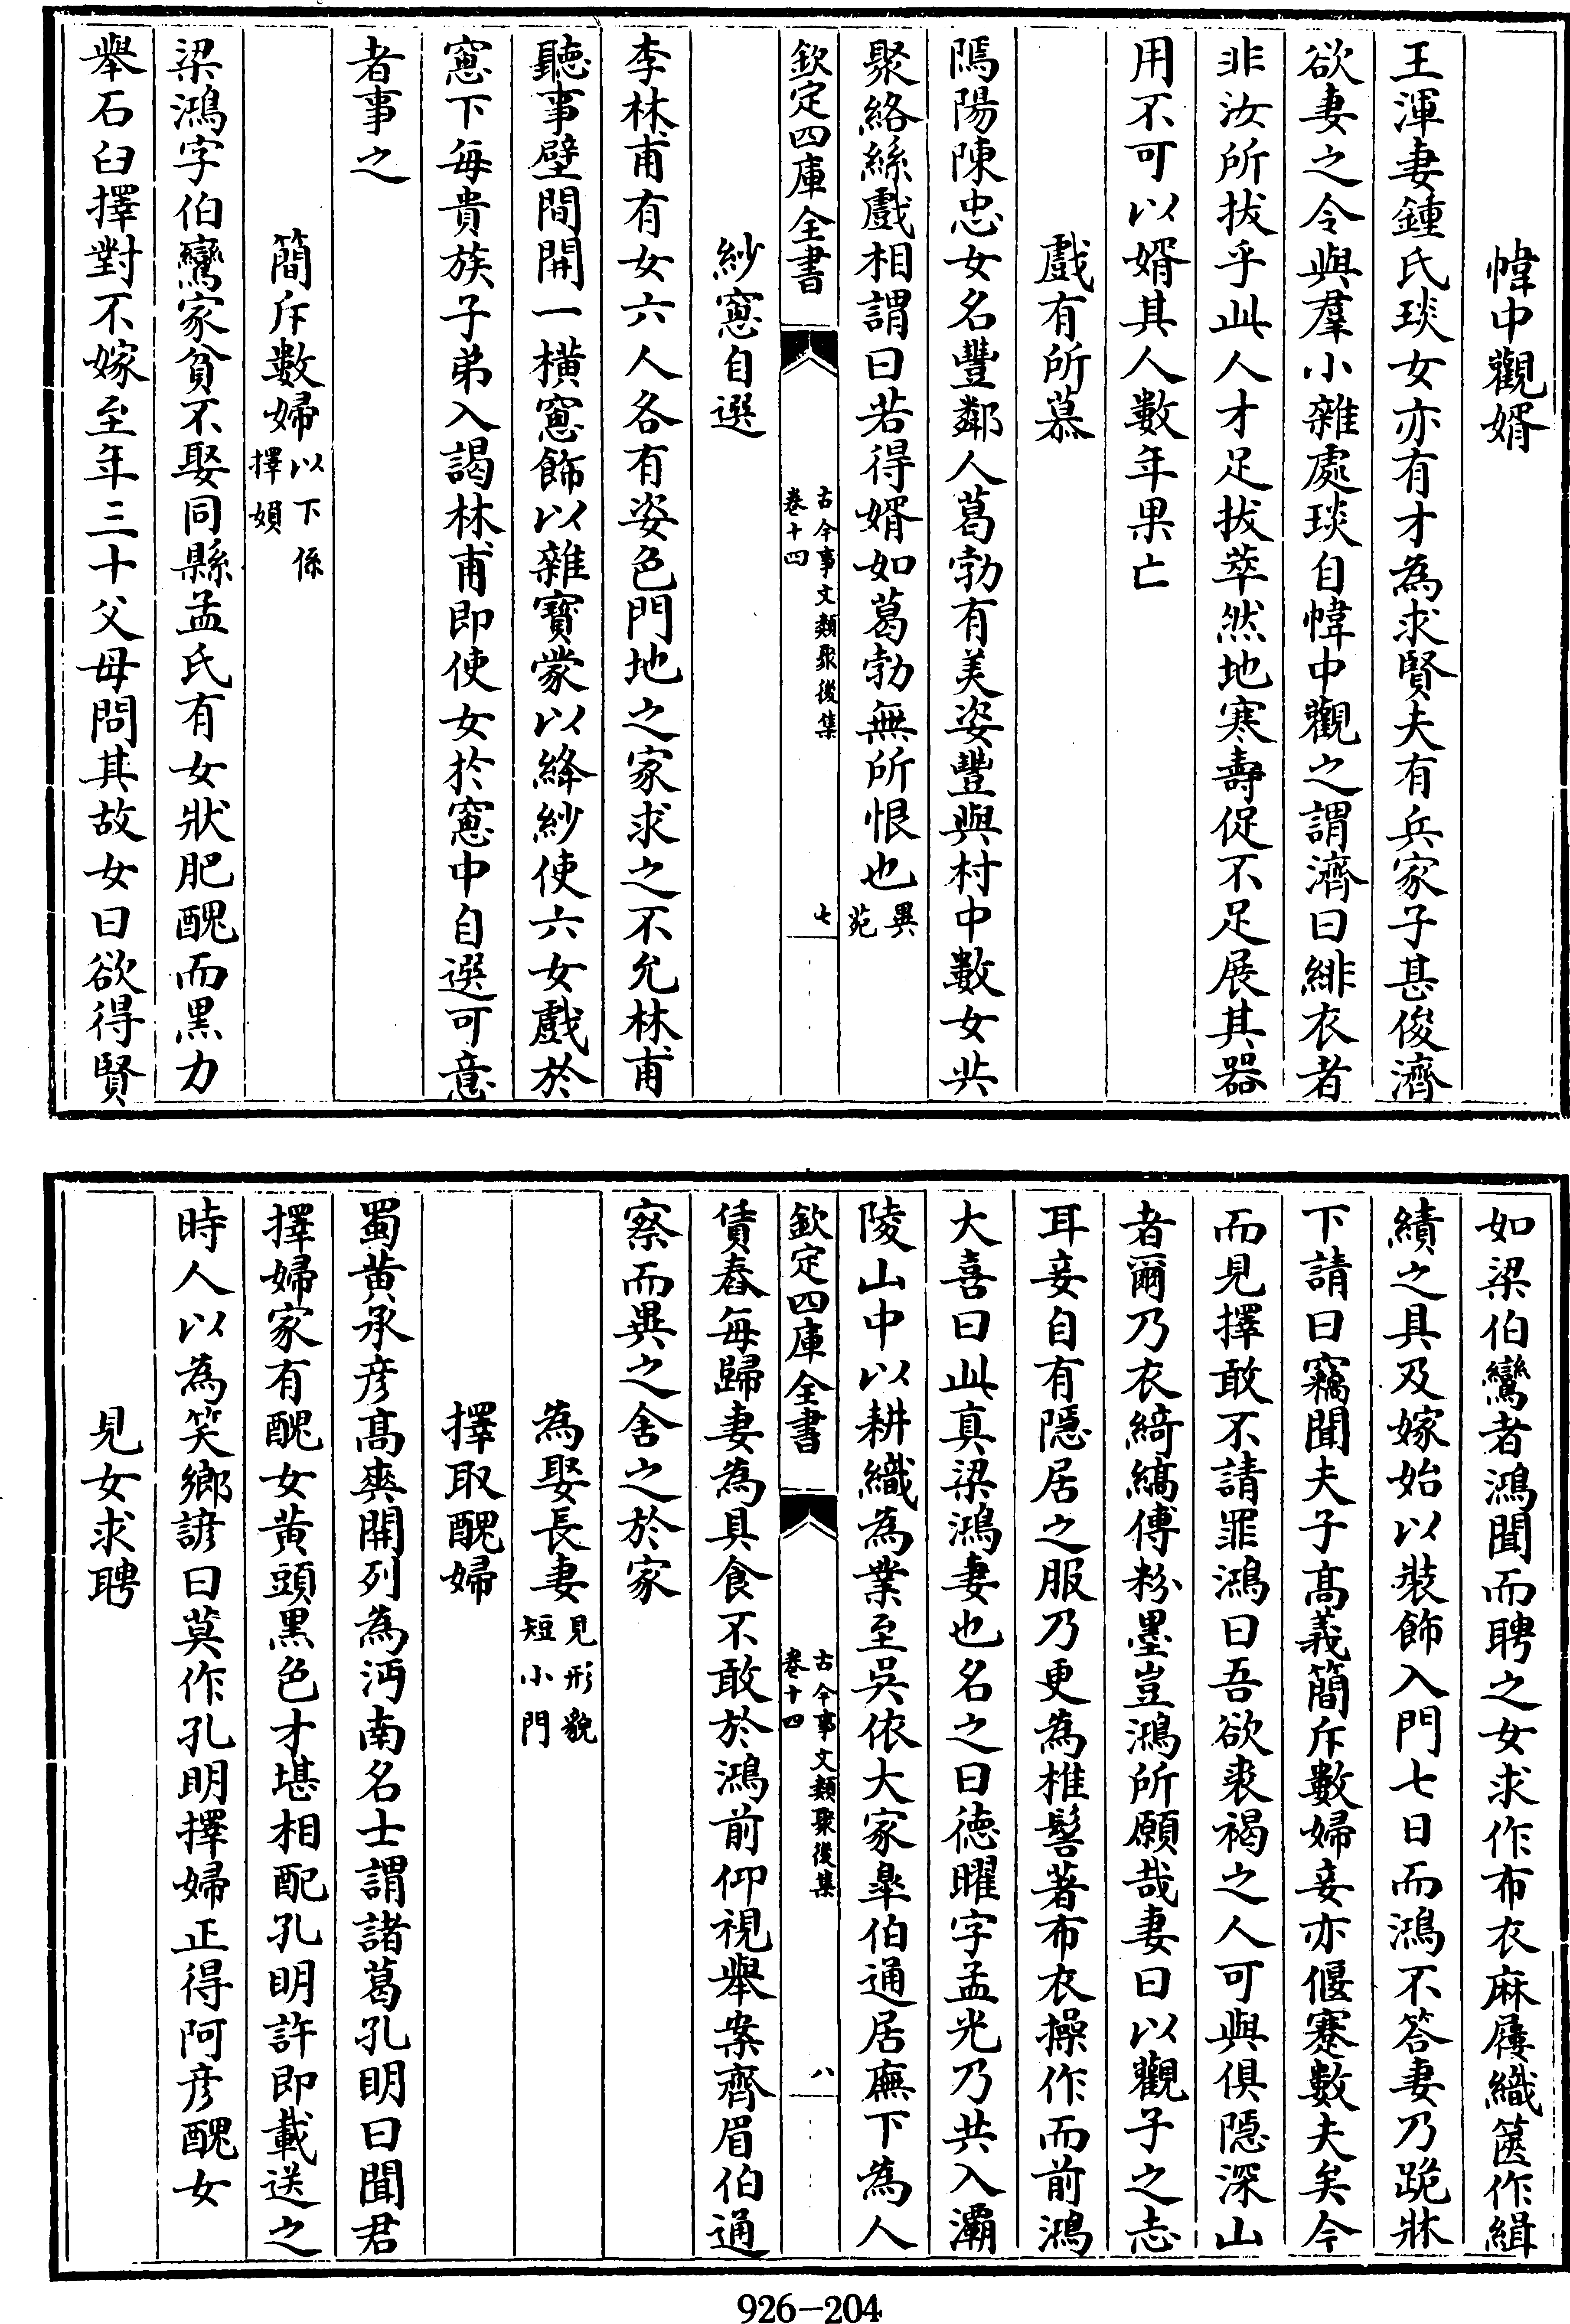 幃中觀婿
王渾妻鍾氏琰女亦有才為求賢夫有兵家子甚俊濟
欲妻之令與羣小雜處琰自幃中觀之謂濟曰緋衣者
非汝所拔乎此人才足拔萃然地寒壽促不足展其器
用不可以婿其人數年果亡
戲有所慕
隖陽陳忠女名豐鄰人葛勃有美姿豐與村中數女共
聚絡絲戲相謂曰若得婿如葛勃無所恨也異苑
欽定四庫全書
古今事文類聚後集
卷十四
七
紗窻自選
李林甫有女六人各有姿色門地之家求之不允林甫
聽事壁間開一橫窻飾以雜寶蒙以絳紗使六女戲於
窻下每貴族子弟入謁林甫即使女於窻中自選可意
者事之
簡斥數婦以下係擇婦
梁鴻字伯鸞家貧不娶同縣孟氏有女狀肥醜而黑力
舉石臼擇對不嫁至年三十父母問其故女曰欲得賢
如梁伯鸞者鴻聞而聘之女求作布衣麻屨織筐作緝
績之具及嫁始以裝飾入門七日而鴻不答妻乃跪牀
下請曰竊聞夫子高義簡斥數婦妾亦偃蹇數夫矣今
而見擇敢不請罪鴻曰吾欲裘褐之人可與俱隱深山
者爾乃衣綺縞傅粉墨豈鴻所願哉妻曰以觀子之志
耳妾自有隱居之服乃更為椎髻著布衣操作而前鴻
大喜曰此真梁鴻妻也名之曰德曜字孟光乃共入灞
陵山中以耕織為業至吳依大家皋伯通居廡下為人
欽定四庫全書
古今事文類聚後集
卷十四
八
賃舂每歸妻為具食不敢於鴻前仰視舉案齊眉伯通
察而異之舍之於家
為娶長妻見形貌短小門
擇取醜婦
蜀黃承彥高爽開列為沔南名士謂諸葛孔明曰聞君
擇婦家有醜女黃頭黑色才堪相配孔明許即載送之
時人以為笑鄉諺曰莫作孔明擇婦正得阿彥醜女
見女求聘
926-204